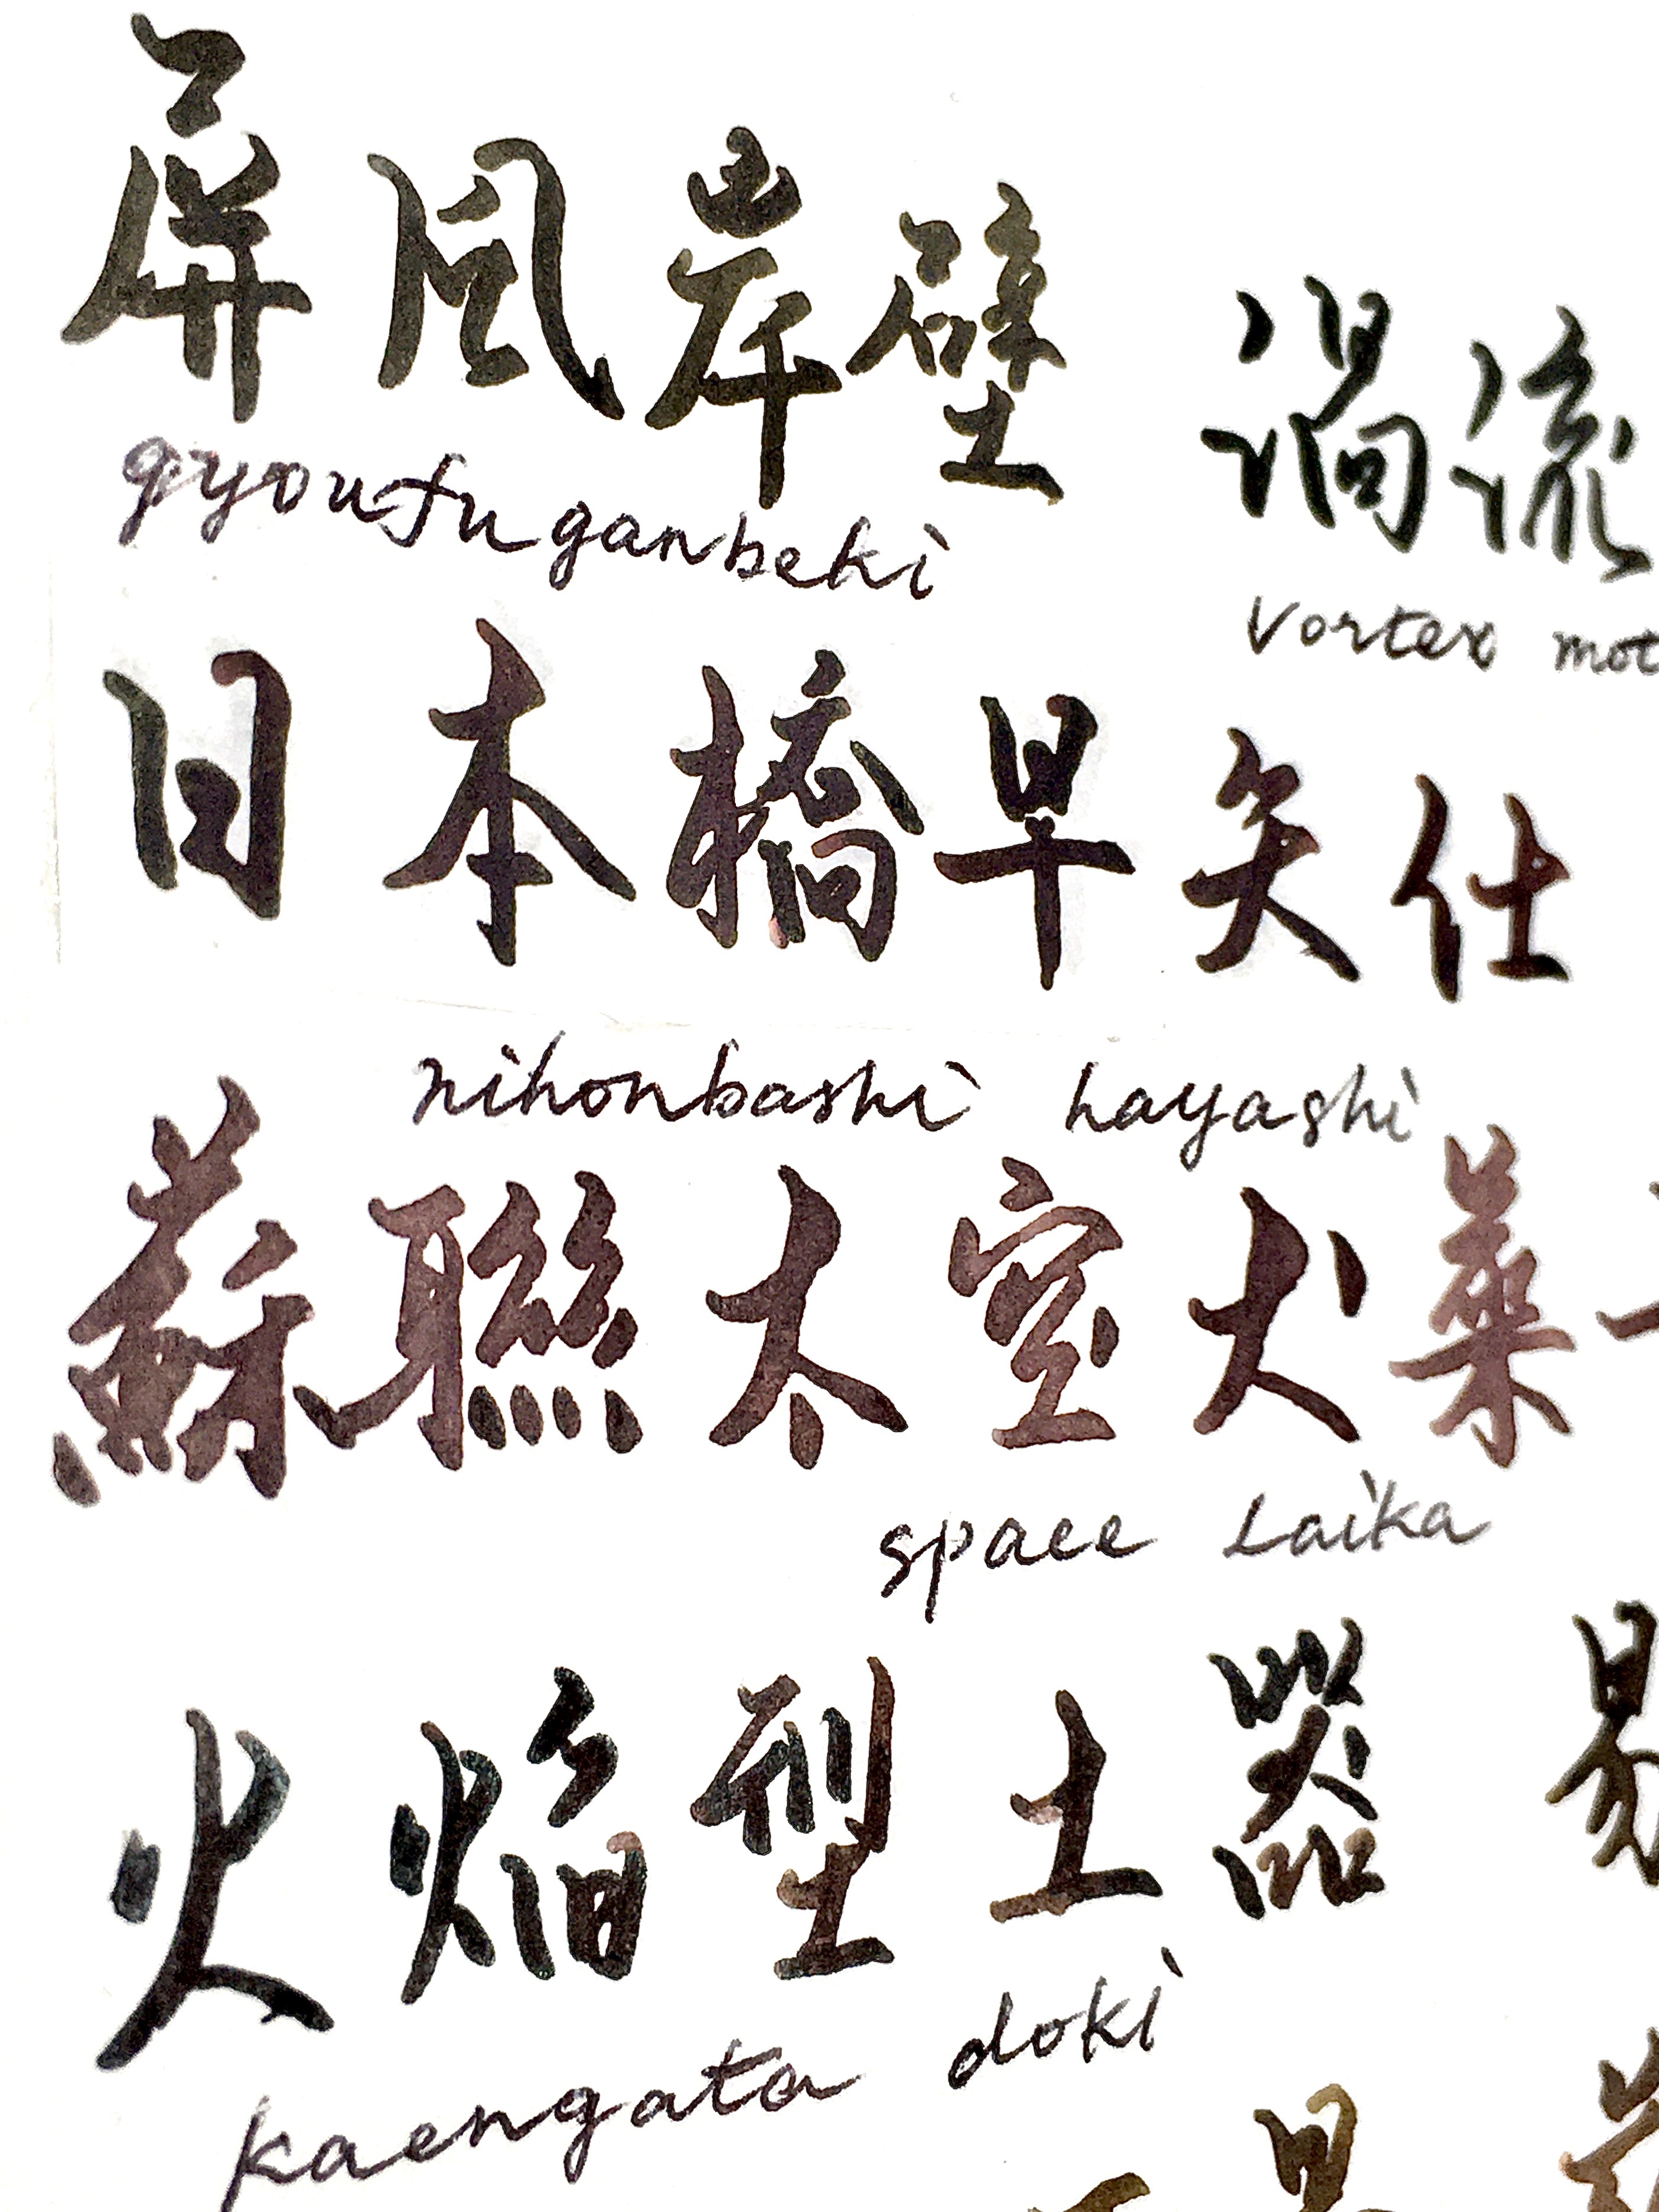 屏風岸壁
渦流
gyoufuganbeki
vortex mot
日本橋早矢仕
nihonbashi hayashi
蘇聯太空犬萊
space Laika
火焔型土器
易
kaengata doki